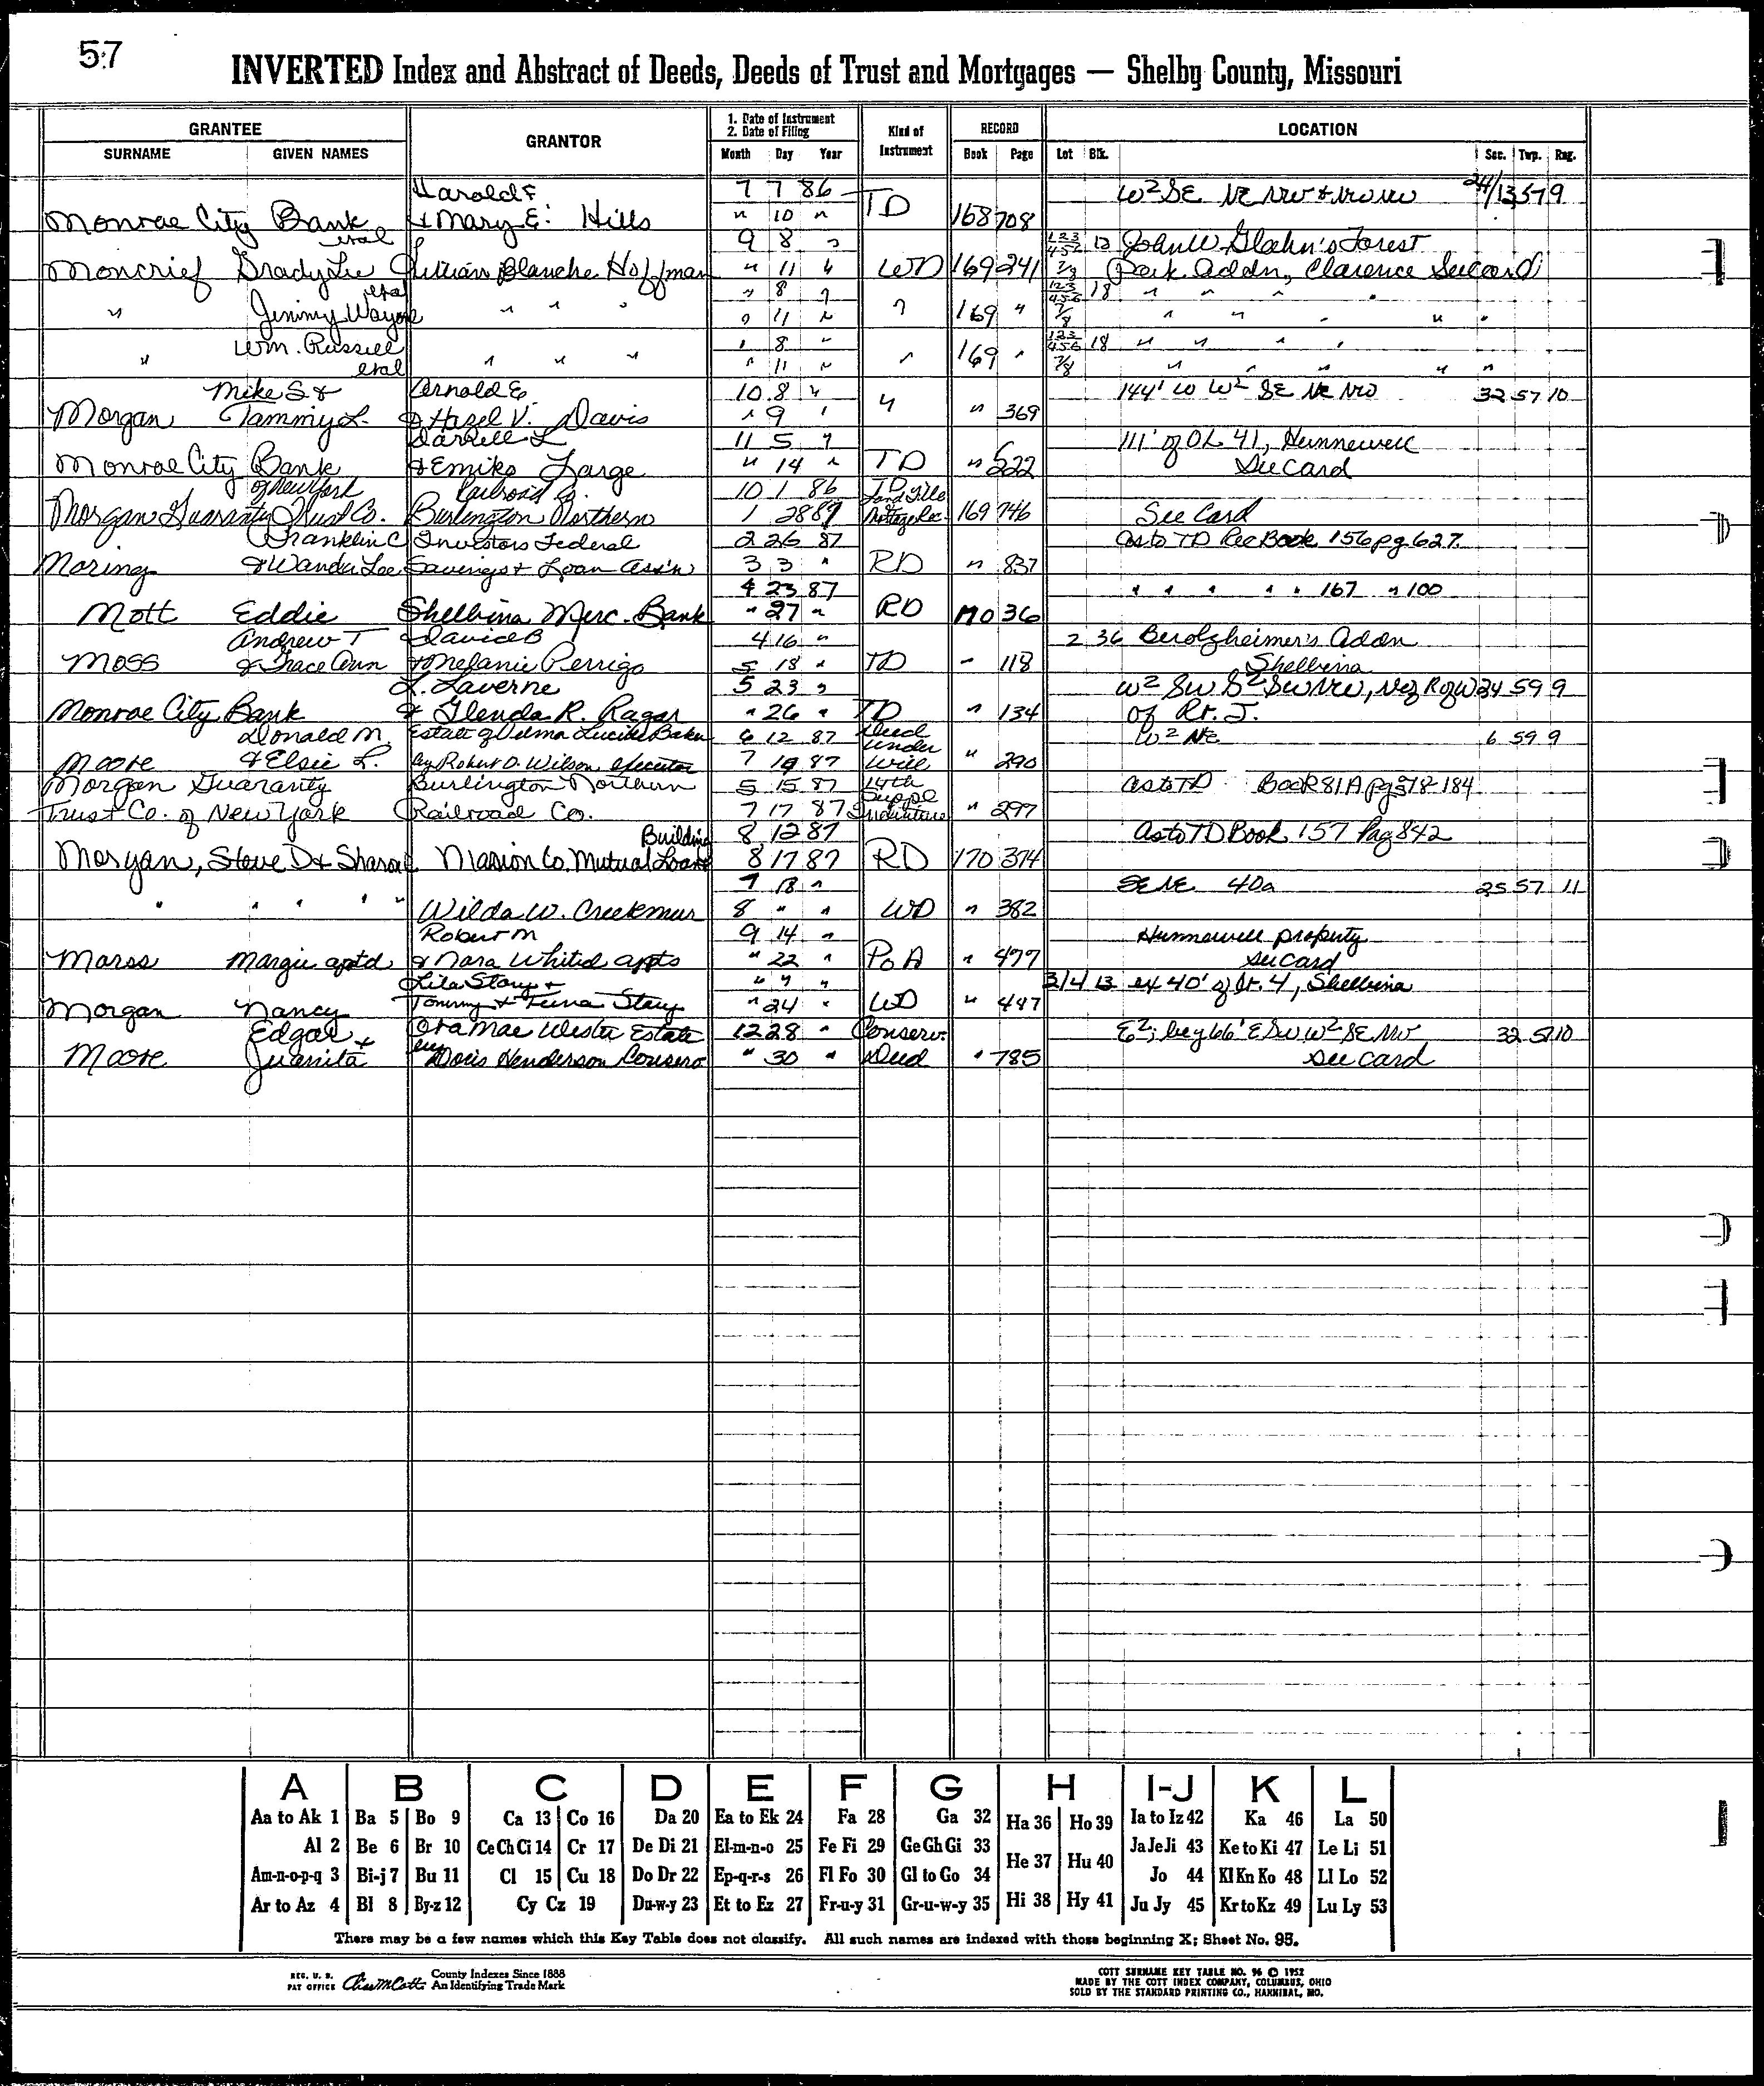 57
INVERTED Index and Abstract of Deeds, Deeds of Trust and Mortgages — Shelby County, Missouri
GRANTEE GRANTOR 1. Date of Instrument 2. Date of Filing Kind of Instrument RECORD LOCATION
SURNAME GIVEN NAMES Month Day Year Book Page Lot Blk. Sec. Twp. Rng.
Harold F 7 7 86 W² SE NE NW & NW NW 24/13 57 9
Monroe City Bank & Mary E. Hills " 10 " TD 168 708
etal 9 8 " 123 456 13 John W. Glahn's Forest
Moncrief Grady Lee Lillian Blanche Hoffman " 11 " WD 169 241 7/8 Park Addn, Clarence See Card
etal " 8 " 123 456 18 " " " "
" Jimmy Wayne " " " " 11 " " 169 " 7/8 " " " " "
Wm. Russell " 8 " 123 456 18 " " " "
" etal " " " " 11 " " 169 " 7/8 " " " " "
Mike S & Arnold E. 10 8 " 144' W W² SE NE NW 32 57 10
Morgan Tammy L. & Hazel V. Davis " 9 " " " 369
Darrell L 11 5 " 111' of OL 41, Hunnewell
Monroe City Bank & Emiko Large " 14 " TD " 522 See Card
of New York Railroad Co. 10 1 86 TD
Morgan Guaranty Trust Co. Burlington Northern 1 28 87 169 746 See Card
Franklin C Investors Federal 2 26 87 As to TD Rec Book 156 pg 627
Moring & Wanda Lee Savings & Loan Ass'n 3 3 " RD " 837
4 23 87 " " " " " 167 " 100
Mott Eddie Shelbina Merc. Bank " 27 " RD 170 36
Andrew T David B 4 16 " 2 36 Berolzheimer's Addn
Moss & Grace Ann & Melanie Perrigo 5 18 " TD " 118 Shelbina
L. Laverne 5 23 " W² SW S² SW NW, N of R of W 34 59 9
Monroe City Bank & Glenda R. Ragar " 26 " TD " 134 of Rt. J.
Donald M. Estate of Velma Lucille Baker 6 12 87 Deed under W² NE 6 59 9
Moore & Elsie L. by Robert D. Wilson, executor 7 10 87 Will " 290
Morgan Guaranty Burlington Northern 5 15 87 14th Suppl As to TD Book 81A pgs 78-184
Trust Co. of New York Railroad Co. 7 17 87 Indenture " 297
Building 8 12 87 As to TD Book 157 Pag 842
Morgan, Steve D & Sharon Marion Co. Mutual Loan 8 17 87 RD 170 374
7 13 " SE NE 40a 25 57 11
" " " " " Wilda W. Creekmur 8 " " WD " 382
Robert M 9 14 " Hunnewell property
Morss Margie aptd & Nara Whited appts " 22 " PoA " 477 See Card
Lila Story & " " " 3/4 13 ex 40' of Lt. 4, Shelbina
Morgan Nancy Tommy & Teena Story " 24 " WD " 447
Edgar & Ora Mae Wester Estate 12 28 " Conserv. E²; beg 66' E SW W² SE NW 32 57 10
Moore Juanita by Doris Henderson Conserv " 30 " Deed " 785 See card
A B C D E F G H I-J K L
Aa to Ak 1 Ba 5 Bo 9 Ca 13 Co 16 Da 20 Ea to Ek 24 Fa 28 Ga 32 Ha 36 Ho 39 Ia to Iz 42 Ka 46 La 50
Al 2 Be 6 Br 10 Ce Ch Ci 14 Cr 17 De Di 21 El-m-n-o 25 Fe Fi 29 Ge Gh Gi 33 He 37 Hu 40 Ja Je Ji 43 Ke to Ki 47 Le Li 51
Am-n-o-p-q 3 Bi-j 7 Bu 11 Cl 15 Cu 18 Do Dr 22 Ep-q-r-s 26 Fl Fo 30 Gl to Go 34 Jo 44 Kl Kn Ko 48 Ll Lo 52
Ar to Az 4 Bl 8 By-z 12 Cy Cz 19 Du-w-y 23 Et to Ez 27 Fr-u-y 31 Gr-u-w-y 35 Hi 38 Hy 41 Ju Jy 45 Kr to Kz 49 Lu Ly 53
There may be a few names which this Key Table does not classify. All such names are indexed with those beginning X; Sheet No. 95.
REG. U. S. PAT OFFICE County Indexes Since 1888 An Identifying Trade Mark
COTT SURNAME KEY TABLE NO. 96 © 1952
MADE BY THE COTT INDEX COMPANY, COLUMBUS, OHIO
SOLD BY THE STANDARD PRINTING CO., HANNIBAL, MO.